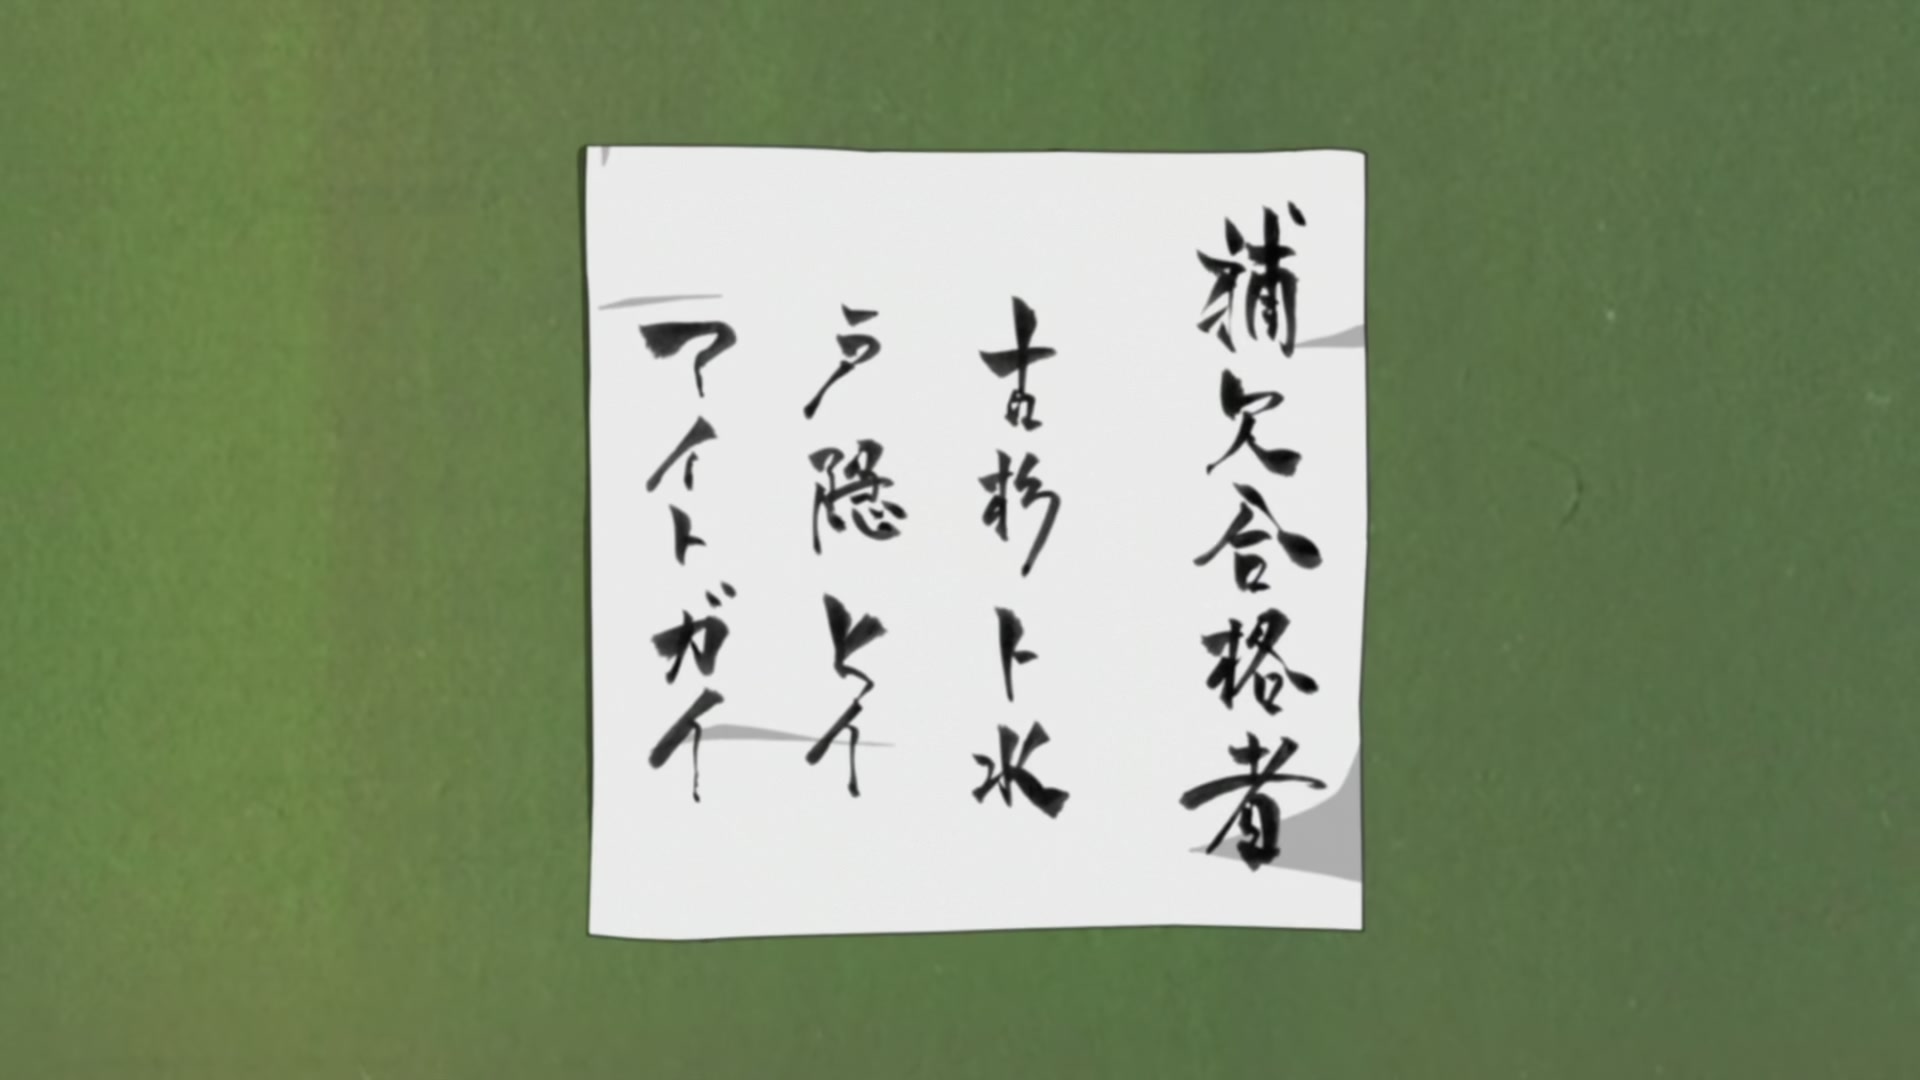 補欠合格者
古杉ト水
戸隠ヒイ
アイトガイ